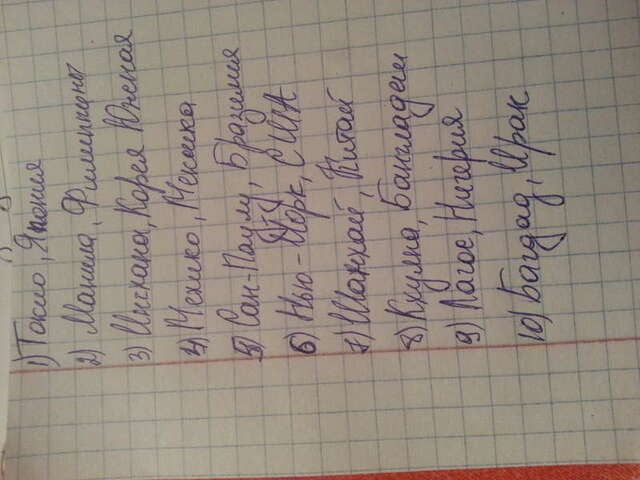 1) Токио, Япония
2) Манила, Филиппины
3) Инчхана, Корея Южная
4) Мехико, Мексика
5) Сан-Паулу, Бразилия
6) Нью-Йорк, США
7) Шанхай, Китай
8) Кхулна, Бангладеш
9) Лагос, Нигерия
10) Багдад, Ирак